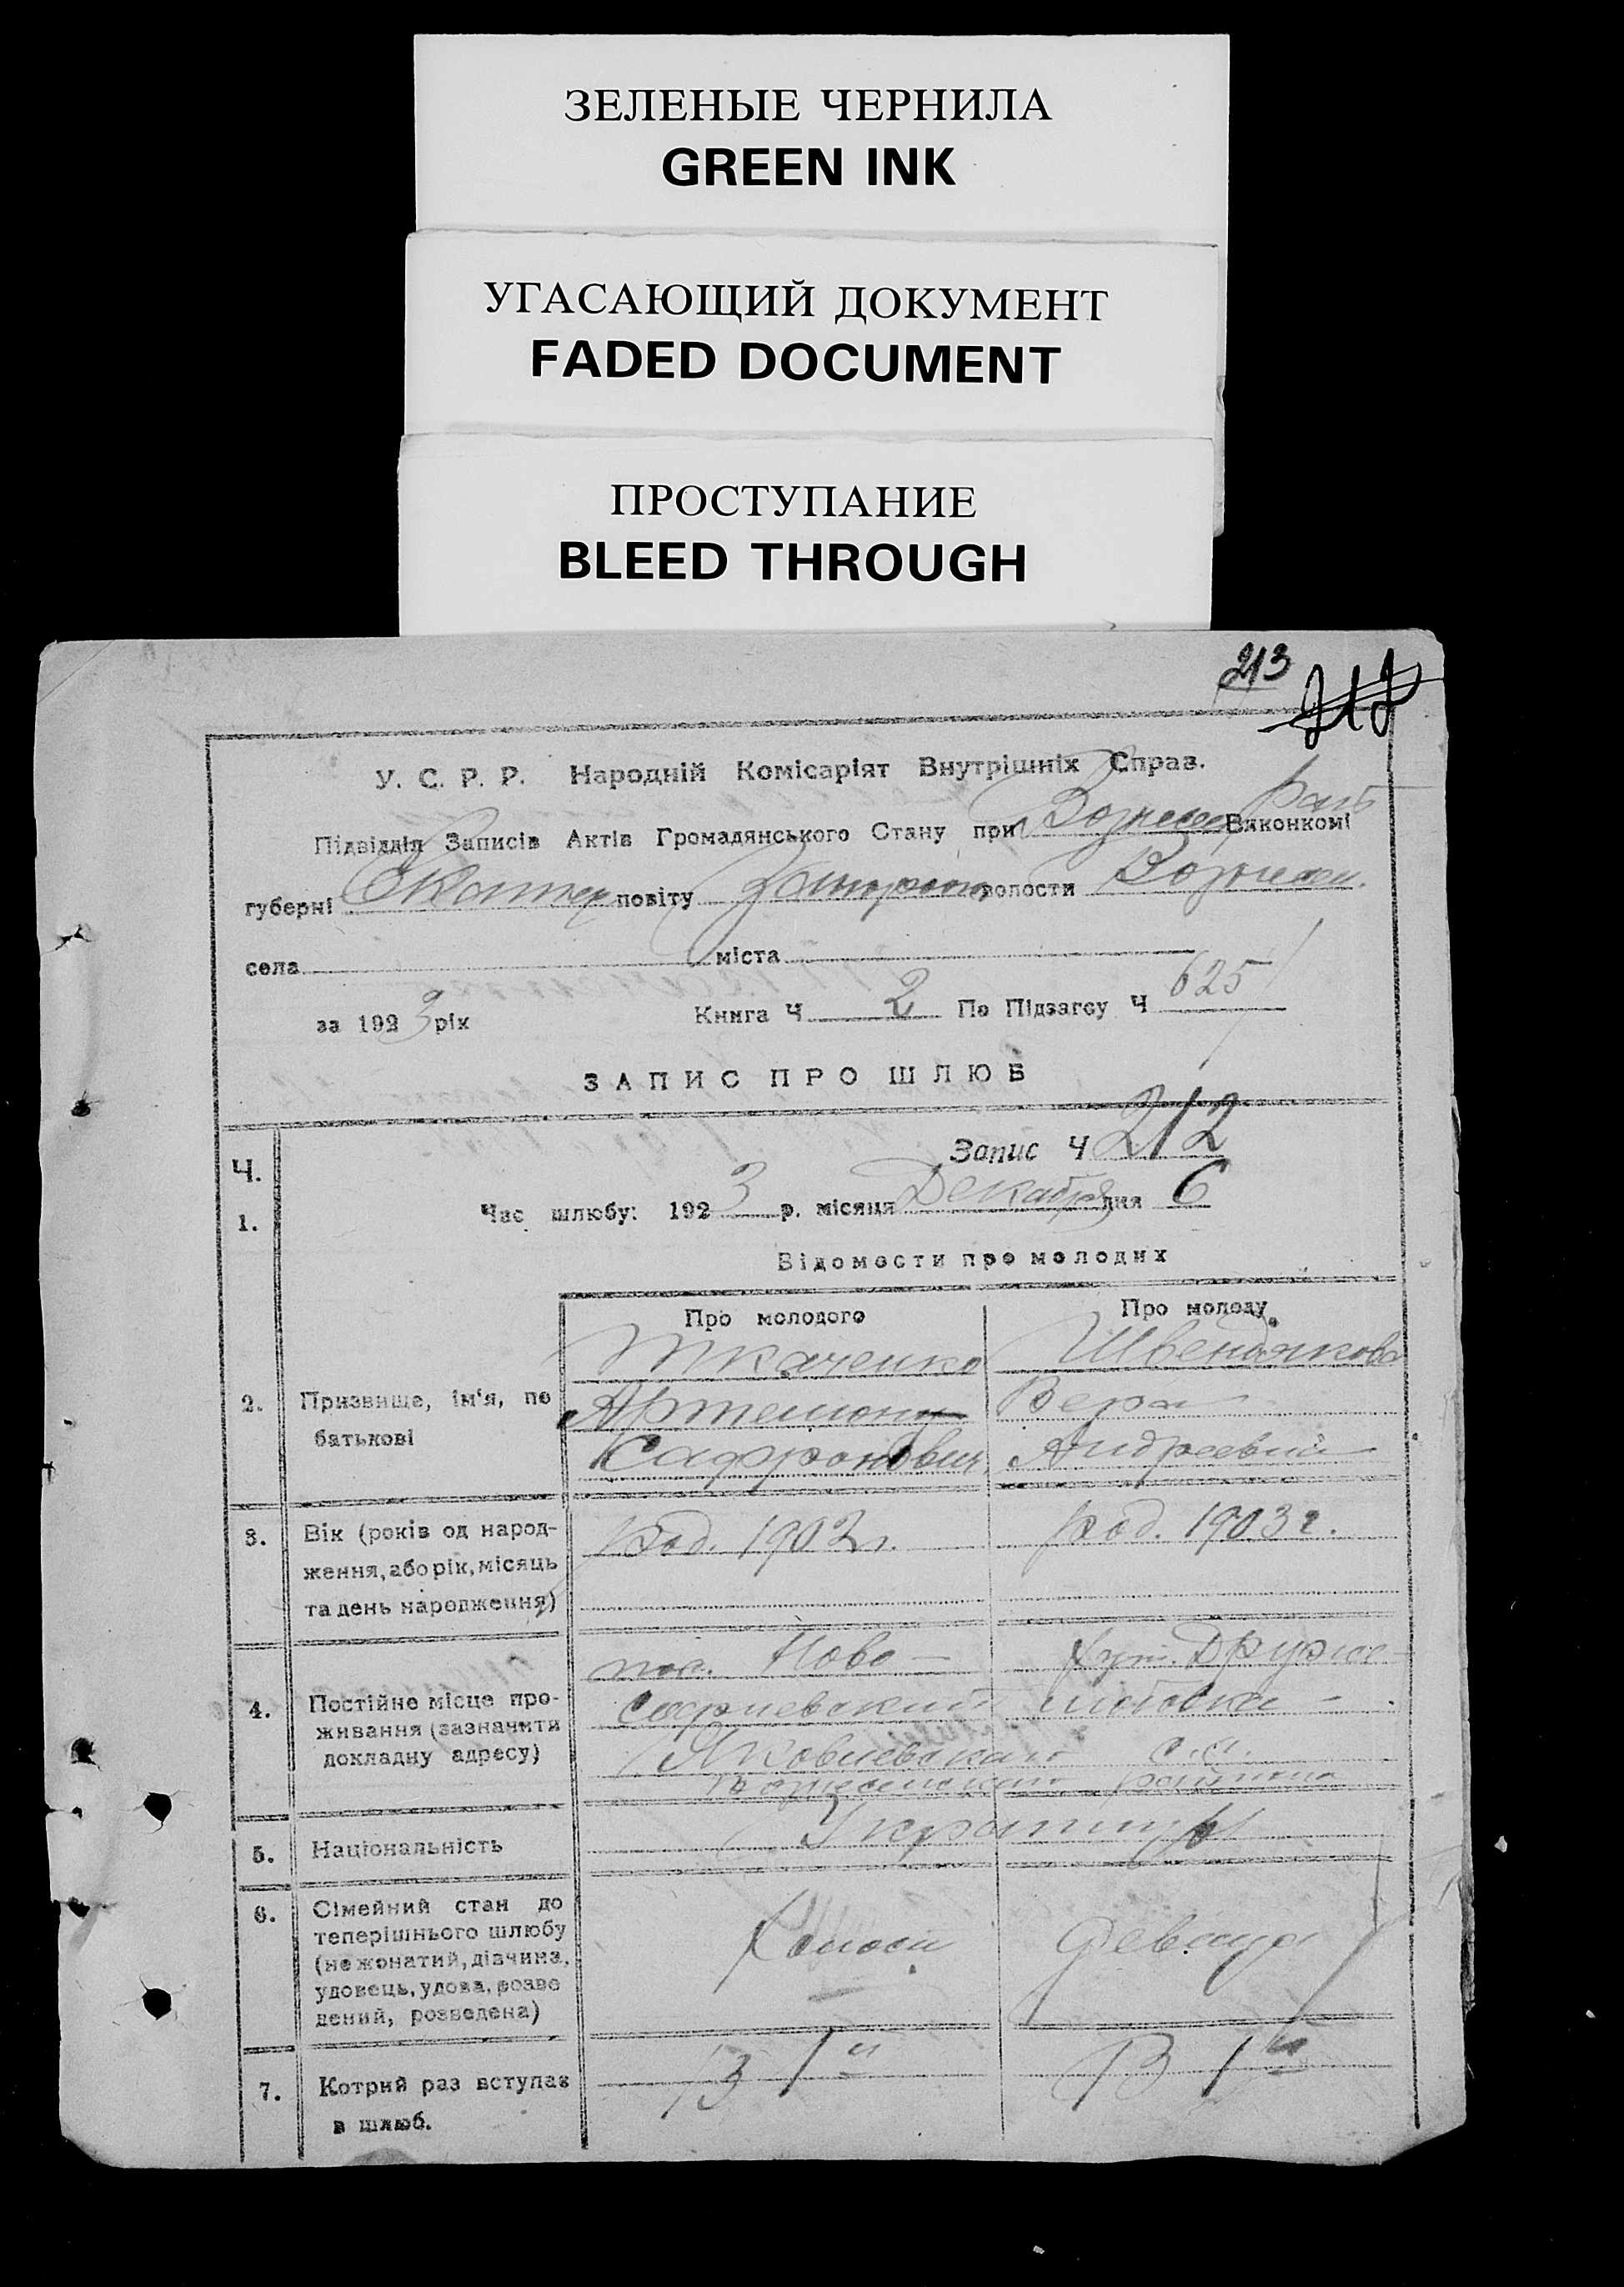 ЗЕЛЕНЫЕ ЧЕРНИЛА
GREEN INK
УГАСАЮЩИЙ ДОКУМЕНТ
FADED DOCUMENT
ПРОСТУПАНИЕ
BLEED THROUGH
213
У. С. Р. Р. Народній Комісаріят Внутрішніх Справ.
Підвідділ Записів Актів Громадянського Стану при Вознесен. рай Виконкомі
губерні Екатер повіту волости Вознесен.
села міста
за 1923 рік Книга Ч 2 По Підзагсу Ч 625
ЗАПИС ПРО ШЛЮБ
Запис Ч 212
Ч.
1. Час шлюбу: 1923 р. місяця Декабря дня 6
Відомости про молодих
Про молодого Про молоду
Ткаченко Швендякова
2. Призвище, ім'я, по Артемон Вера
батькові Сафронович Андреевна
3. Вік (років од народ- Род. 1902 г. род. 1903 г.
ження, або рік, місяць
та день народження)
пос. Ново- хут. Друже-
4. Постійне місце про- софиевский любовка -
живання (зазначити
докладну адресу) Яковлевского с.с.
Вознесенского района
5. Національність Украинцы
6. Сімейний стан до
теперішнього шлюбу
(не жонатий, дівчина, Холост девица
удовець, удова, розве
дений, розведена)
7. Котрий раз вступає В 1й В 1й
в шлюб.